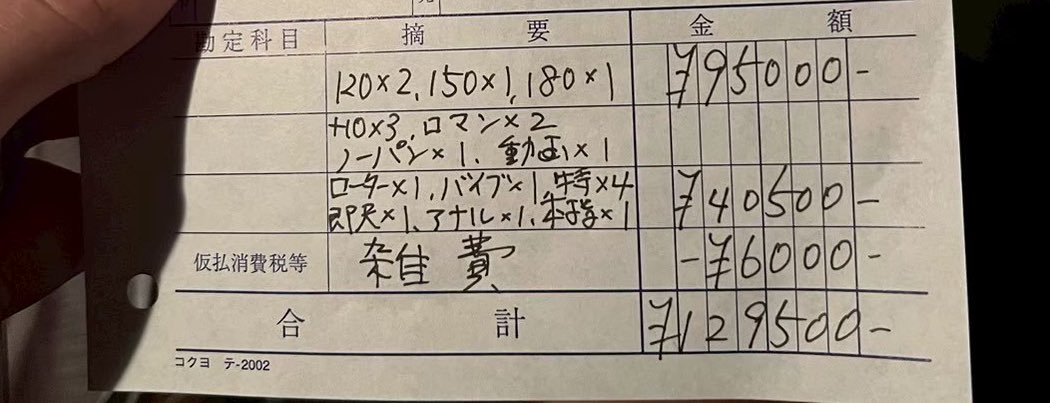 勘定科目 摘要 金額
120×2、150×1、180×1 ¥95000-
+10×3、ロマン×2
ノーパン×1、動画×1
ローター×1、バイブ×1、特×4 ¥40500-
即尺×1、アナル×1、本指×1
仮払消費税等 雑費 -¥6000-
合計 ¥129500-
コクヨ テ-2002